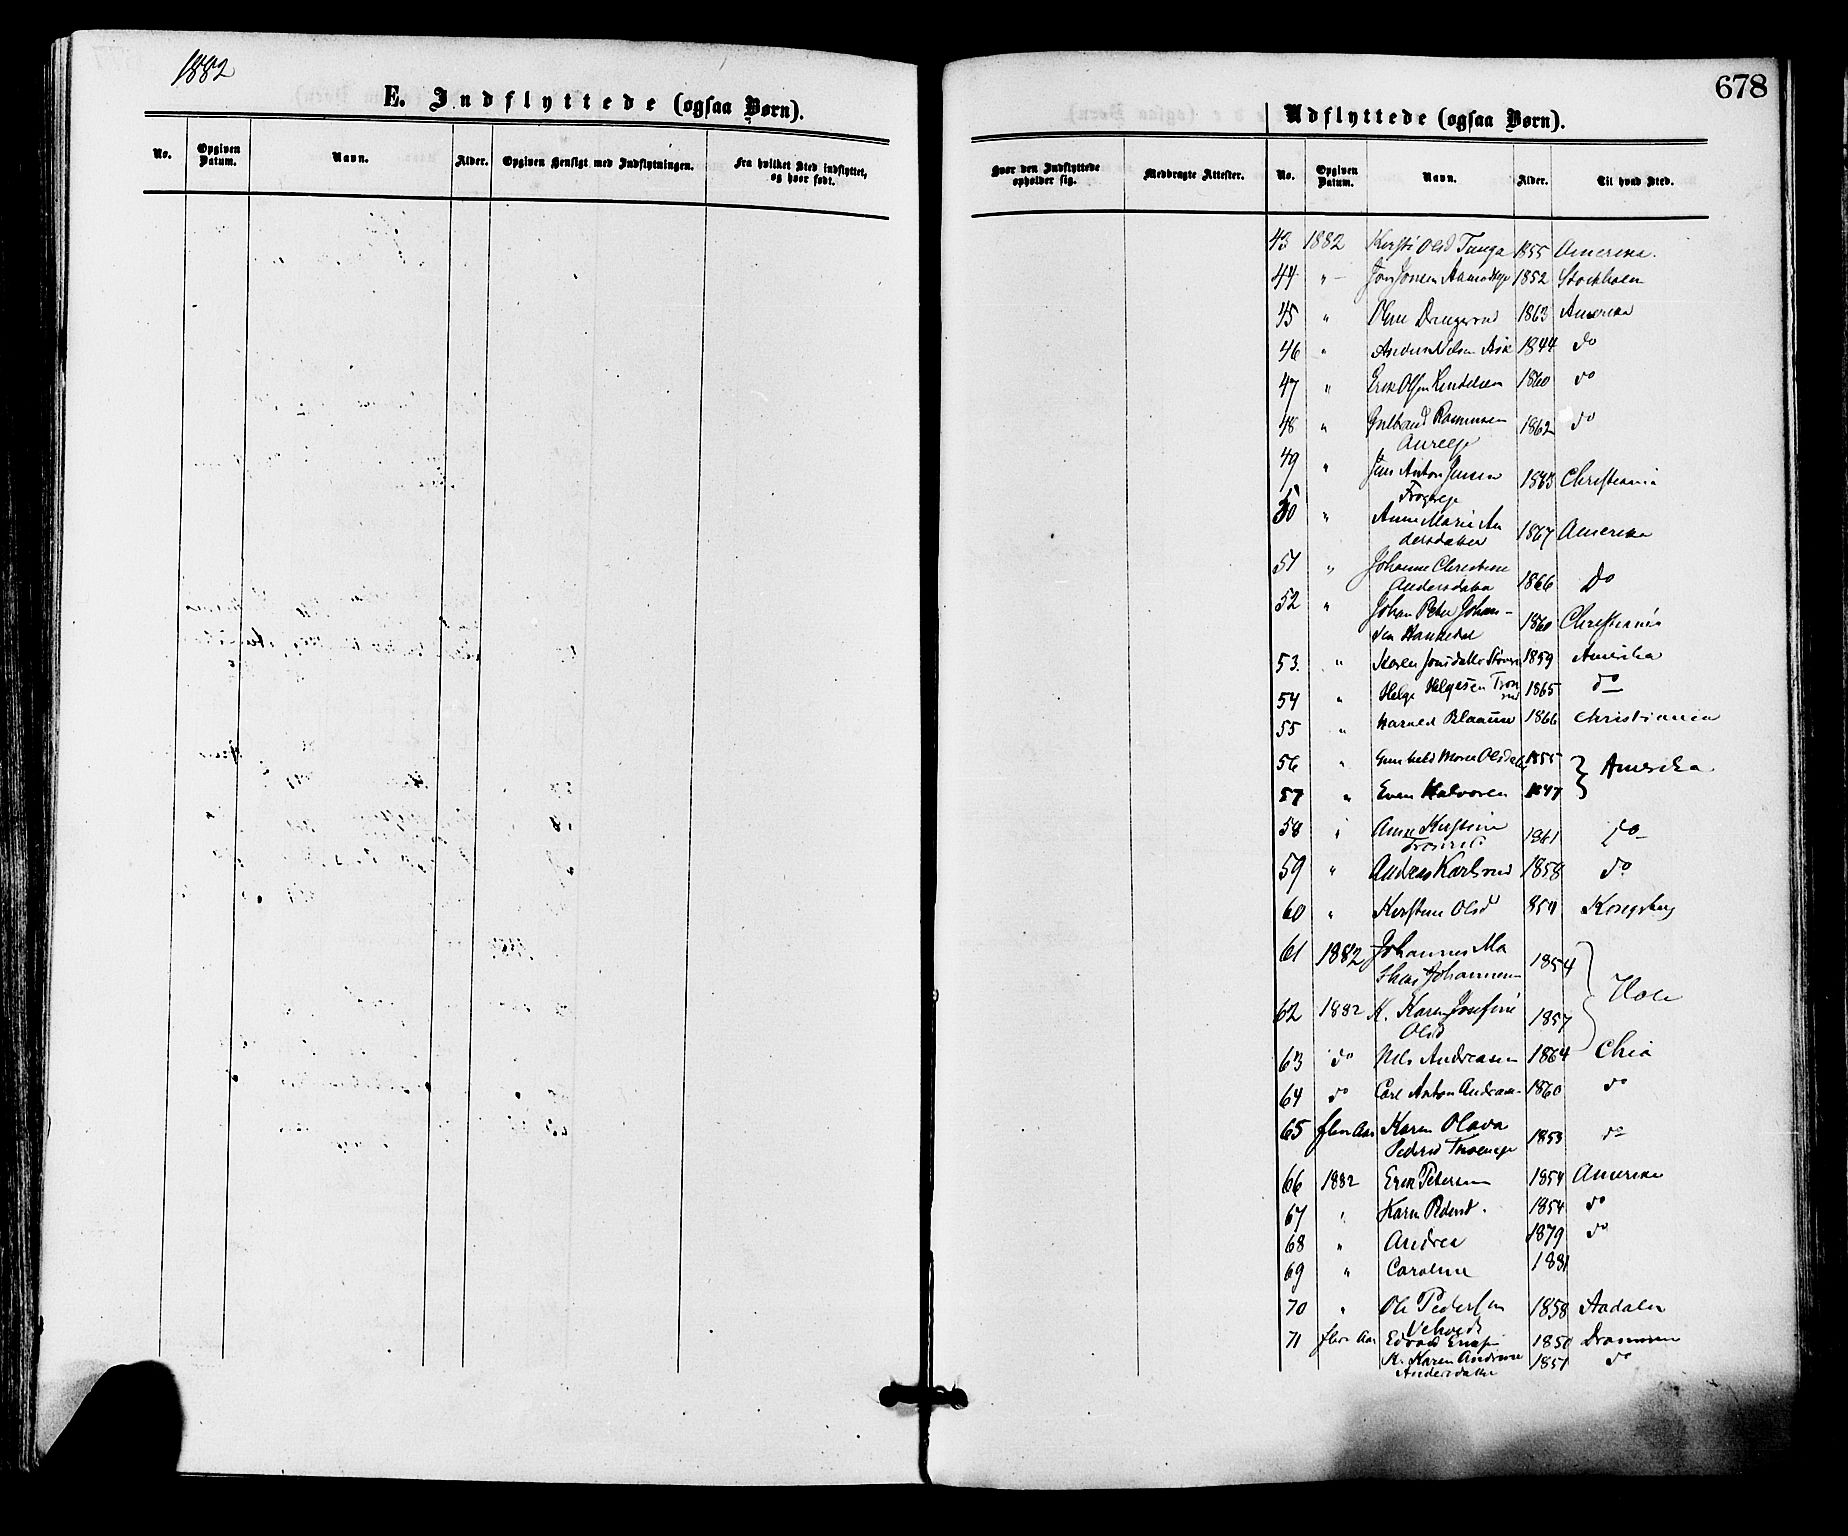 1882
678
E. Indflyttede (ogsaa Børn).
Udflyttede (ogsaa Børn).
No. Opgiven Datum. Navn. Alder. Opgiven Hensigt med Indflytningen. Fra hvilket Sted indflyttet, og hvor født.
Hvor den Indflyttede opholder sig. Medbragte Attester. No. Opgiven Datum. Navn. Alder. Til hvad Sted.
43 1882 Kersti Olsd Tanga 1855 Amerika.
44 " Jon Jonsen 1852 Stockholm
45 " 1863 Amerika
46 " Anders Nilsen Ask 1844 do
47 " Erik Olsen 1860 do
48 " Gulbrand Rasmussen 1862 do
49 " Jens Anton Jensen 1863 Christiania
50 " Anne Marie An
dersdatter 1867 Amerika
51 " Johanne Christine
Andersdatter 1866 Do
52 " Johan Peter Johan-
sen 1860 Christiania
53. " Karen Jonsdatter 1859 Amerika
54 " Helge Helgesen 1865 do
55 " Harald 1866 Christiania
56 " Gunhild Marie Olsdatter 1855 } Amerika
57 " Even Halvorsen 1847
58 " Anne Kirstine 1861 do
59 " Andreas Karlsrud 1858 do
60 " Kirstine Olsd 1854 Kongsberg
61 1882 Johannes Ma
thias Johannesen 1854 } Hole
62 1882 K. Karen Josefine
Olsd 1857
63 do Nils Andreasen 1864 Chria
64 do Carl Anton Andreasen 1860 do
65 flere Aar Karen Olava
Pedersd 1853 do
66 1882 Erik Petersen 1854 Amerika
67 " Karen Pedersd. 1854 do
68 " Andrea 1879 do
69 " Caroline 1881
70 " Ole Pedersen 1858 Aadalen
71 flere Aar Edvard 1850 Drammen
K. Karen Andrine 1851 do
Andersdatter